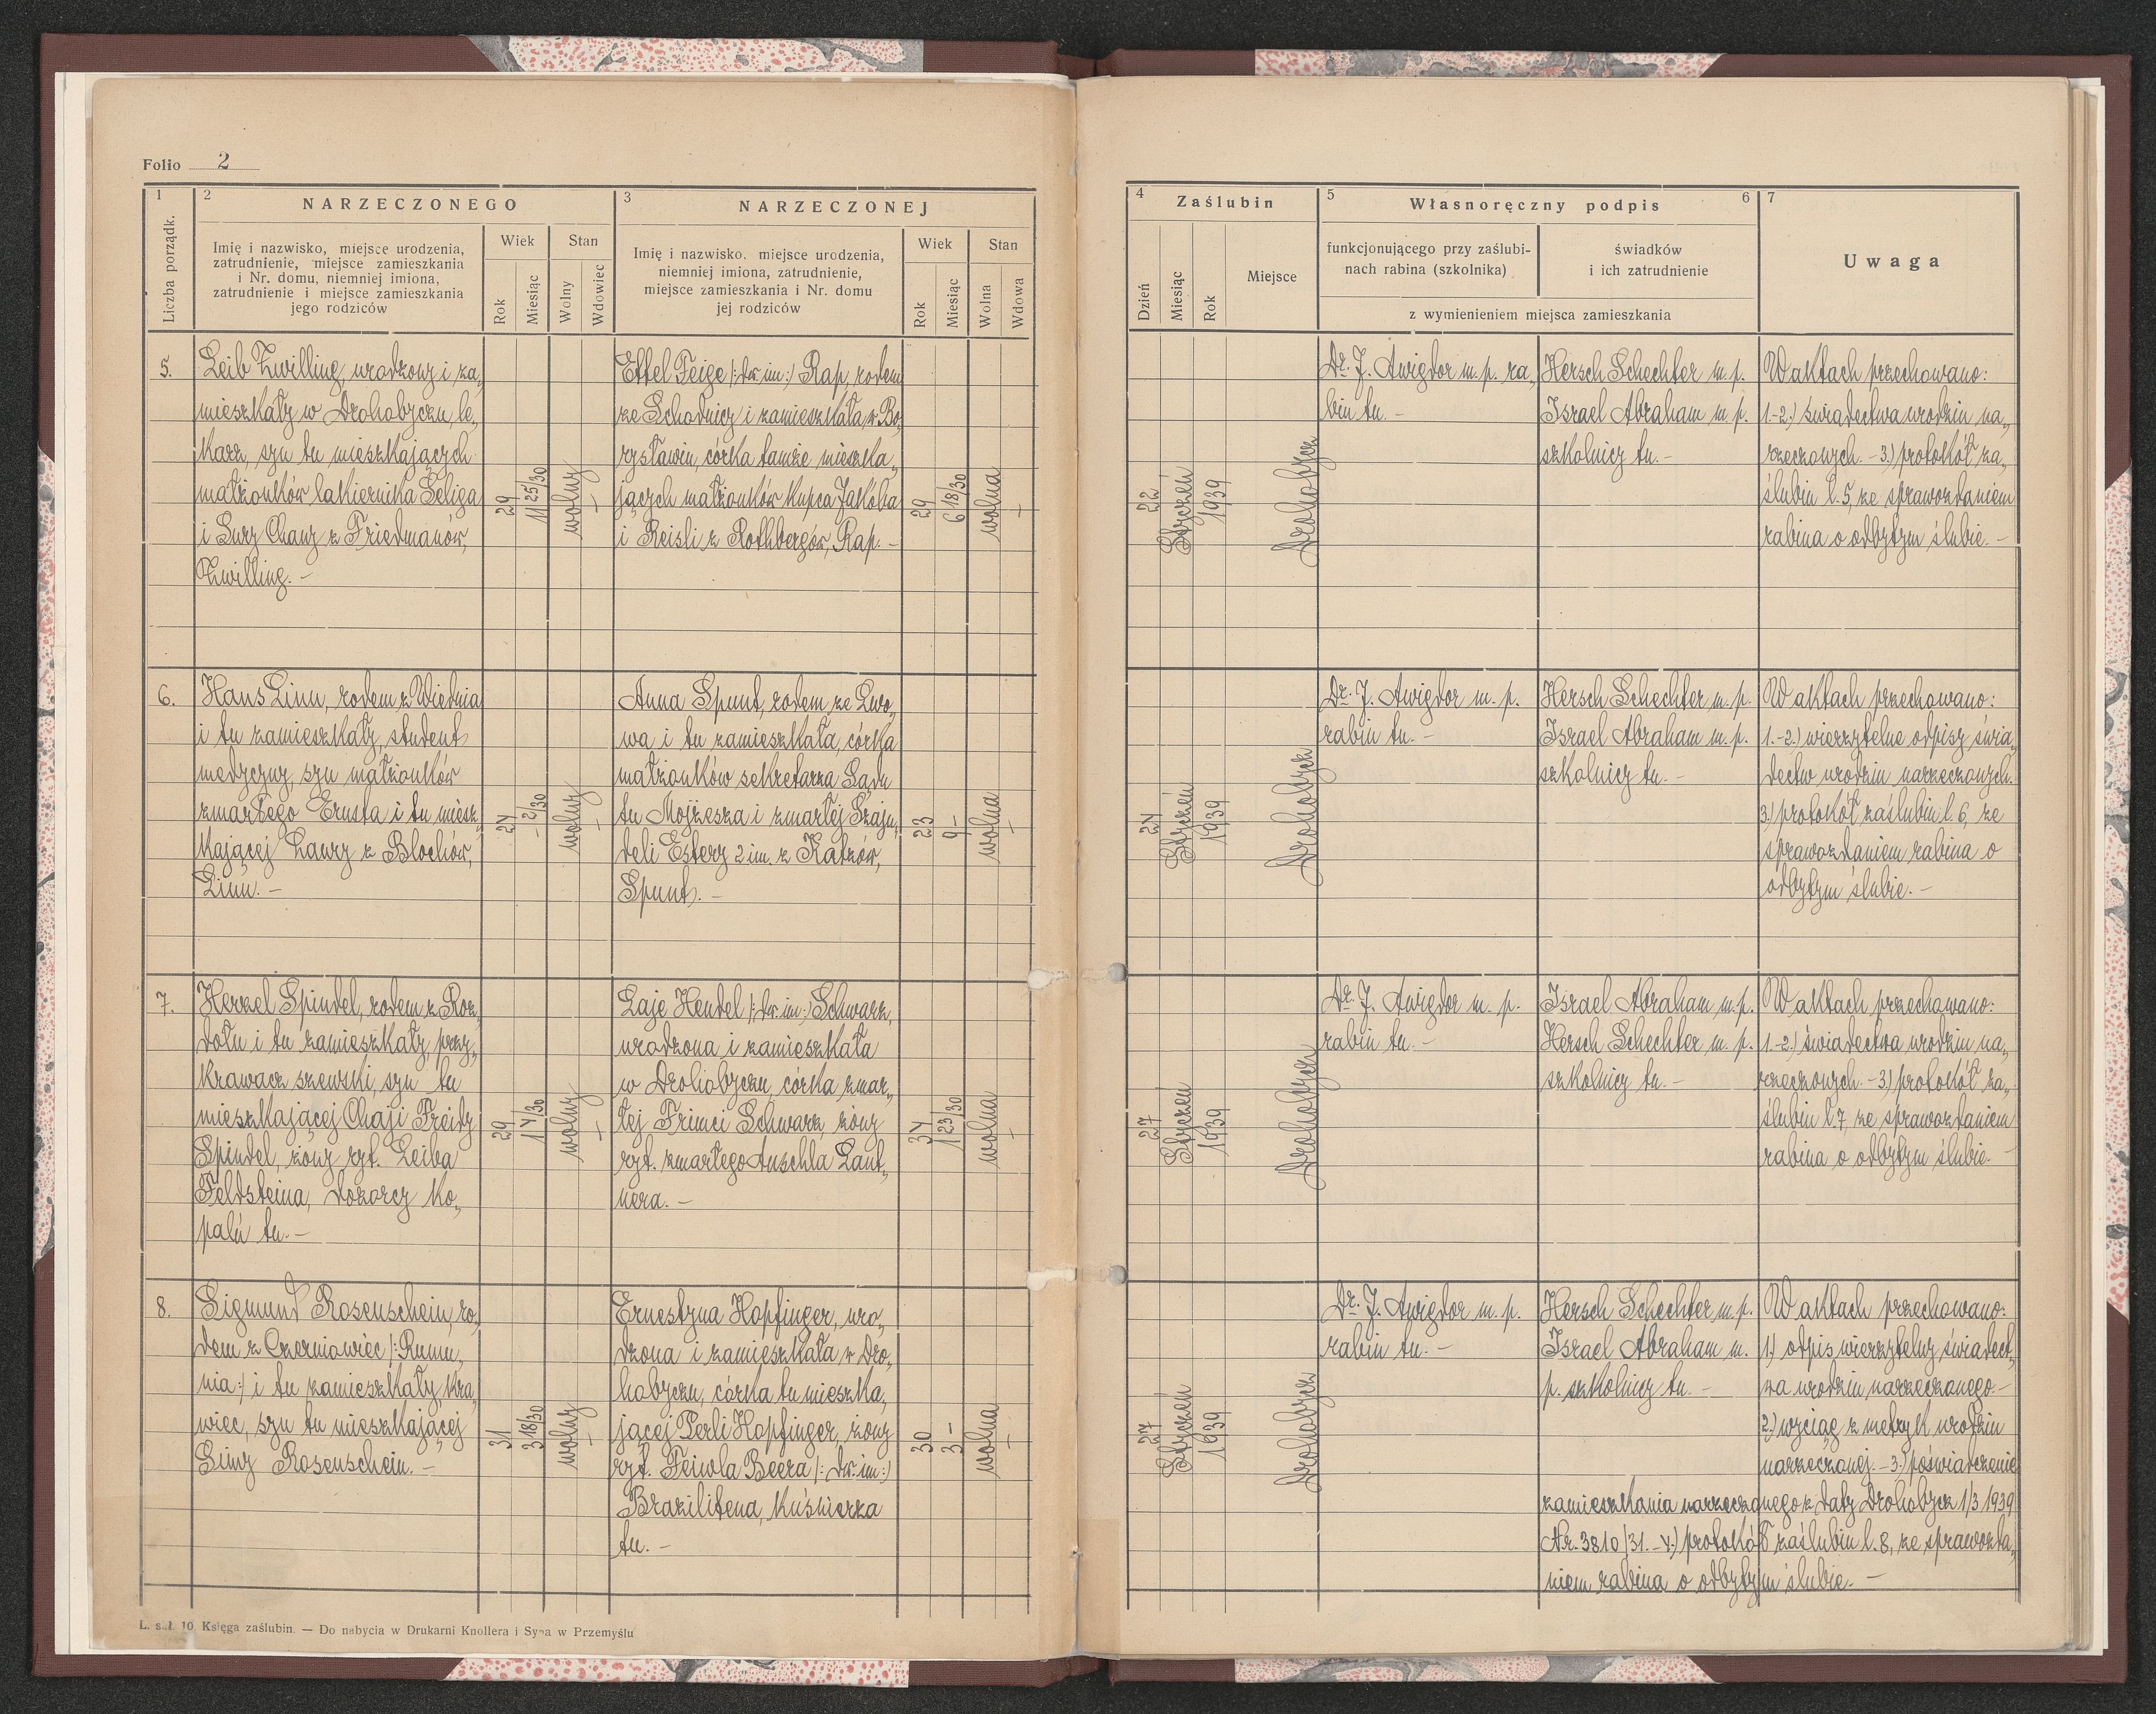 Folio 2
1
2
NARZECZONEGO
3
NARZECZONEJ
Liczba porządk.
Imię i nazwisko, miejsce urodzenia,
zatrudnienie, miejsce zamieszkania
i Nr. domu, niemniej imiona,
zatrudnienie i miejsce zamieszkania
jego rodziców
Wiek
Stan
Rok
Miesiąc
Wolny
Wdowiec
Imię i nazwisko. miejsce urodzenia,
niemniej imiona, zatrudnienie,
miejsce zamieszkania i Nr. domu
jej rodziców
Wiek
Stan
Rok
Miesiąc
Wolna
Wdowa
5.
Leib Zwilling, urodzony i za„
mieszkały w Drohobyczu, le„
karz, syn tu mieszkających
małżonków lakiernika Seliga
i Sury Chany z Friedmanów,
Zwilling. —
29
11 25/30
wolny
—
Ettel Feige /: dw. im:/ Rap, rodem
ze Schodnicy i zamieszkała w Bo„
rysławiu, córka tamże mieszka„
jących małżonków kupca Jakóba
i Reisli z Rothbergów, Rap. —
29
6 18/30
wolna
—
6.
Hans Linn, rodem z Wiednia
i tu zamieszkały, student
medycyny, syn małżonków
zmarłego Ernsta i tu miesz„
kającej Laury z Blochów,
Linn. —
24
- 2/30
wolny
—
Anna Spunt, rodem ze Lwo„
wa i tu zamieszkała, córka
małżonków sekretarza Sądu
tu Mojżesza i zmarłej Szajn„
deli Estery 2 im. z Katzów,
Spunt. —
23
9 -
wolna
—
7.
Herzel Spindel, rodem z Roz„
dołu i tu zamieszkały, przy„
krawacz szewski, syn tu
mieszkającej Chaji Freidy
Spindel, żony ryt. Leiba
Feldsteina, dozorcy ko„
palń tu. —
29
1 4/30
wolny
—
Laje Hendel /: dw. im:/ Schwarz,
urodzona i zamieszkała
w Drohobyczu, córka zmar„
łej Frimci Schwarz, żony
ryt. zmarłego Anschla Laut„
nera. —
34
1 23/30
wolna
—
8.
Sigmund Rosenschein, ro„
dem z Czerniowiec /: Rumu„
nia:/ i tu zamieszkały, kra„
wiec, syn tu mieszkającej
Simy Rosenschein. —
31
3 18/30
wolny
—
Ernestyna Hopfinger, uro„
dzona i zamieszkała w Dro„
hobyczu, córka tu mieszka„
jącej Perli Hopfinger, żony
ryt. Feiwla Beera /: dw. im:/
Brazilitena, kuśnierza
tu. —
30
3 -
wolna
—
L. sał. 10. Księga zaślubin. — Do nabycia w Drukarni Knollera i Syna w Przemyślu
4
Zaślubin
5
Własnoręczny podpis
6
7
Dzień
Miesiąc
Rok
Miejsce
funkcjonującego przy zaślubi-
nach rabina (szkolnika)
świadków
i ich zatrudnienie
z wymienieniem miejsca zamieszkania
Uwaga
22
Styczeń
1939
Drohobycz
Dr. J. Awigdor m. p. ra„
bin tu. —
Hersch Schechter m. p.
Israel Abraham m. p.
szkolnicy tu. —
W aktach przechowano:
1.-2.) świadectwa urodzin na„
rzeczonych. — 3.) protokół za„
ślubin l. 5, ze sprawozdaniem
rabina o odbytym ślubie. —
24
Styczeń
1939
Drohobycz
Dr. J. Awigdor m. p.
rabin tu. —
Hersch Schechter m. p.
Israel Abraham m. p.
szkolnicy tu. —
W aktach przechowano:
1.-2.) wierzytelne odpisy świa„
dectw urodzin narzeczonych.
3.) protokół zaślubin l. 6, ze
sprawozdaniem rabina o
odbytym ślubie. —
27
Styczeń
1939
Drohobycz
Dr. J. Awigdor m. p.
rabin tu. —
Israel Abraham m. p.
Hersch Schechter m. p.
szkolnicy tu. —
W aktach przechowano:
1.-2.) świadectwa urodzin na„
rzeczonych. — 3.) protokół za„
ślubin l. 7, ze sprawozdaniem
rabina o odbytym ślubie. —
27
Styczeń
1939
Drohobycz
Dr. J. Awigdor m. p.
rabin tu. —
Hersch Schechter m. p.
Israel Abraham m.
p. szkolnicy tu. —
W aktach przechowano:
1.) odpis wierzytelny świadect„
wa urodzin narzeczonego —
2.) wyciąg z metryk urodzin
narzeczonej. — 3.) poświadczenie
zamieszkania narzeczonego z daty Drohobycz 1/3 1939
Nr. 3810/31. — 4.) protokół zaślubin l. 8, ze sprawozda„
niem rabina o odbytym ślubie. —